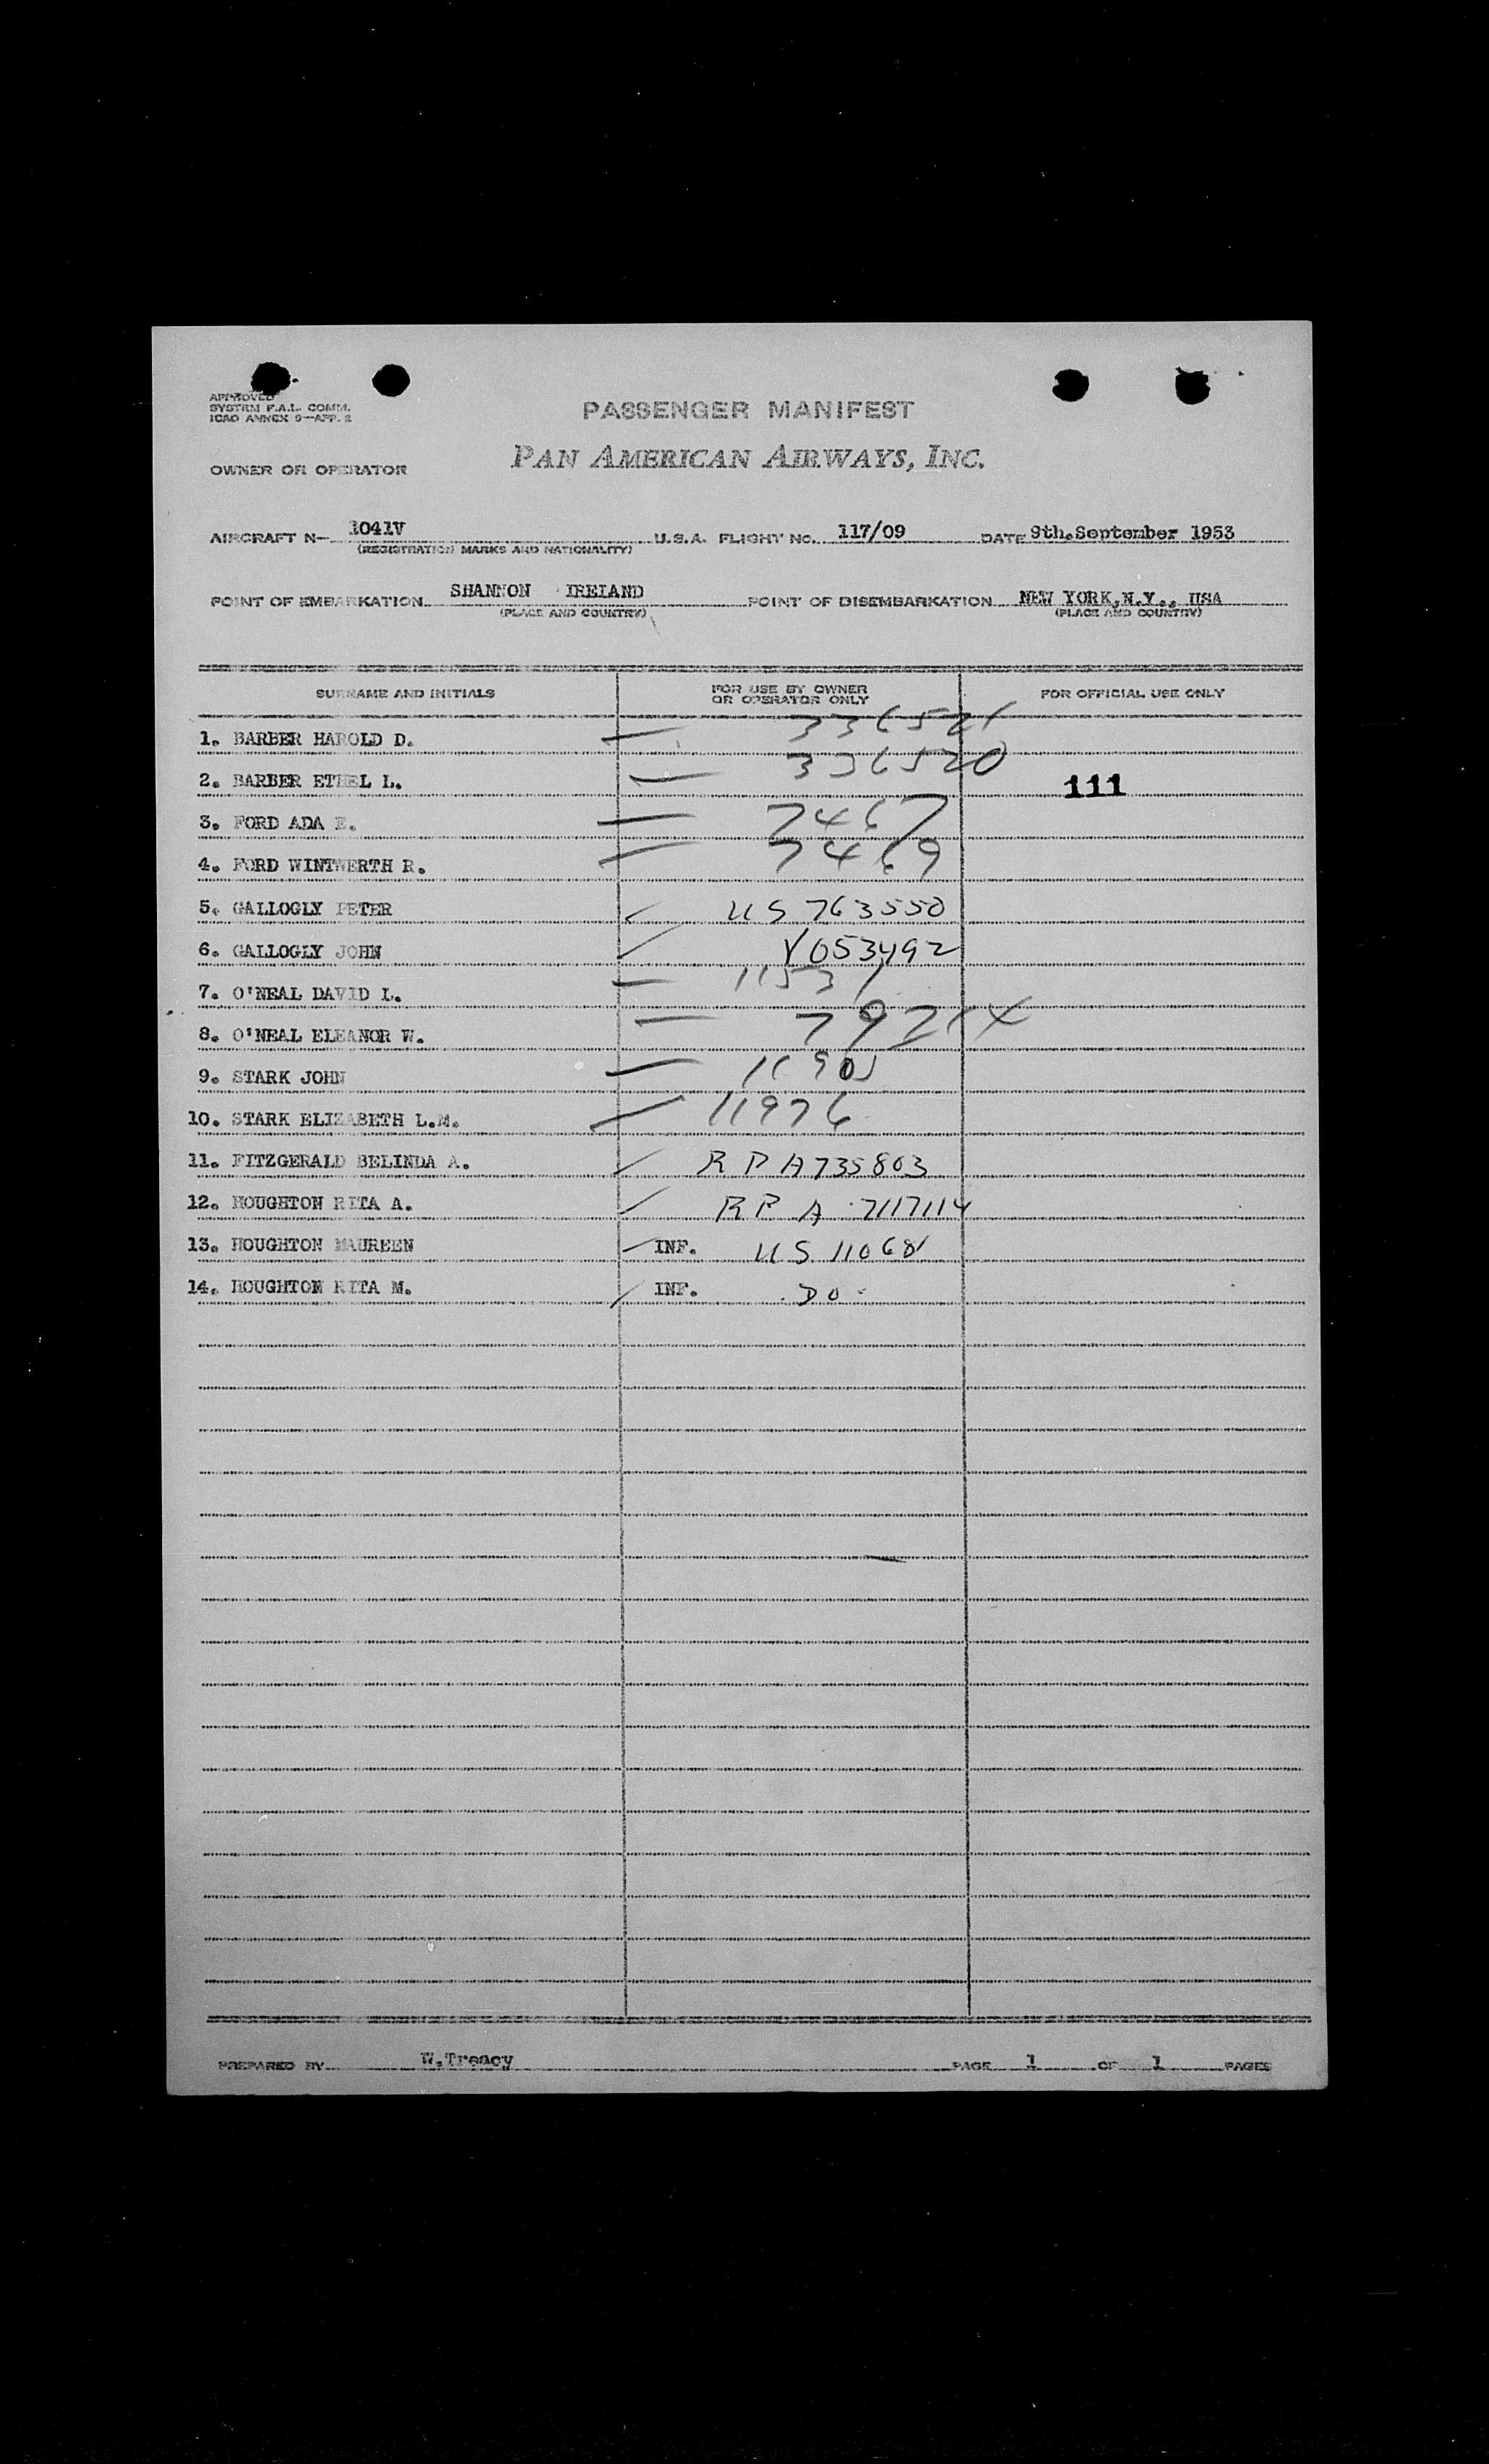 APPROVED
SYSTEM F.A.L. COMM.
ICAO ANNEX 9—APP. 2
PASSENGER MANIFEST
OWNER OR OPERATOR PAN AMERICAN AIRWAYS, INC.
AIRCRAFT N— 1041V U.S.A. FLIGHT NO. 117/09 DATE 9th.September 1953
(REGISTRATION MARKS AND NATIONALITY)
POINT OF EMBARKATION SHANNON IRELAND POINT OF DISEMBARKATION NEW YORK,N.Y., USA
(PLACE AND COUNTRY) (PLACE AND COUNTRY)
SURNAME AND INITIALS FOR USE BY OWNER OR OPERATOR ONLY FOR OFFICIAL USE ONLY
1. BARBER HAROLD D. — 336521
2. BARBER ETHEL L. — 336520 111
3. FORD ADA E. — 7467
4. FORD WINTWERTH R. — 7469
5. GALLOGLY PETER ✓ US 763550
6. GALLOGLY JOHN V053492
7. O'NEAL DAVID L. — 11531
8. O'NEAL ELEANOR W. —
9. STARK JOHN —
10. STARK ELIZABETH L.M. — 11976
11. FITZGERALD BELINDA A. RP A735803
12. HOUGHTON RITA A. RP A 7117114
13. HOUGHTON MAUREEN INF. US 11068
14. HOUGHTON RITA M. INF. DO
PREPARED BY W.Treacy PAGE 1 OF 1 PAGES